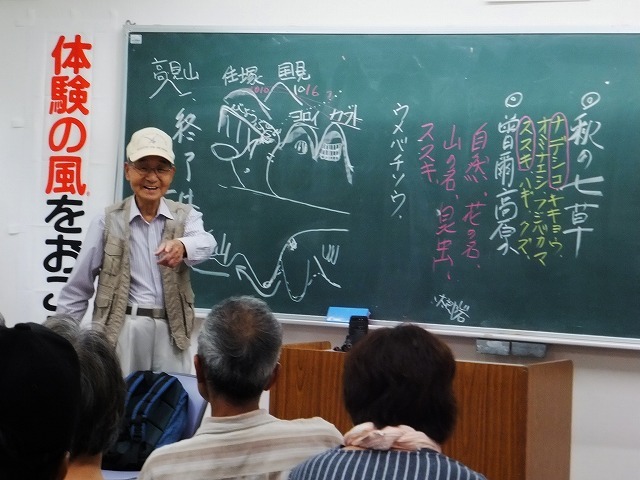 体験の風をおこ
秋の七草
ナデシコ、キキョウ、
オミナエシ、フジバカマ
ススキ、ハギ、クズ、
曽爾高原
自然、花の名、
山の名、昆虫、
ススキ、
ウメバチソウ、
国見
1016
住塚
高見山
終了
山